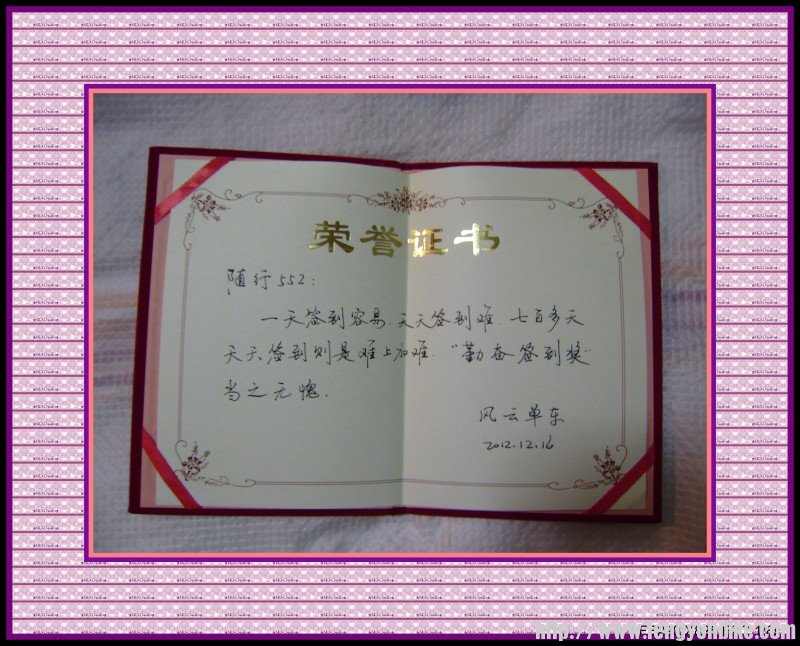 荣誉证书
随行552：
一天签到容易，天天签到难，七百多天
天天签到则是难上加难，“勤奋签到奖”
当之无愧．
风云单车
2012.12.16